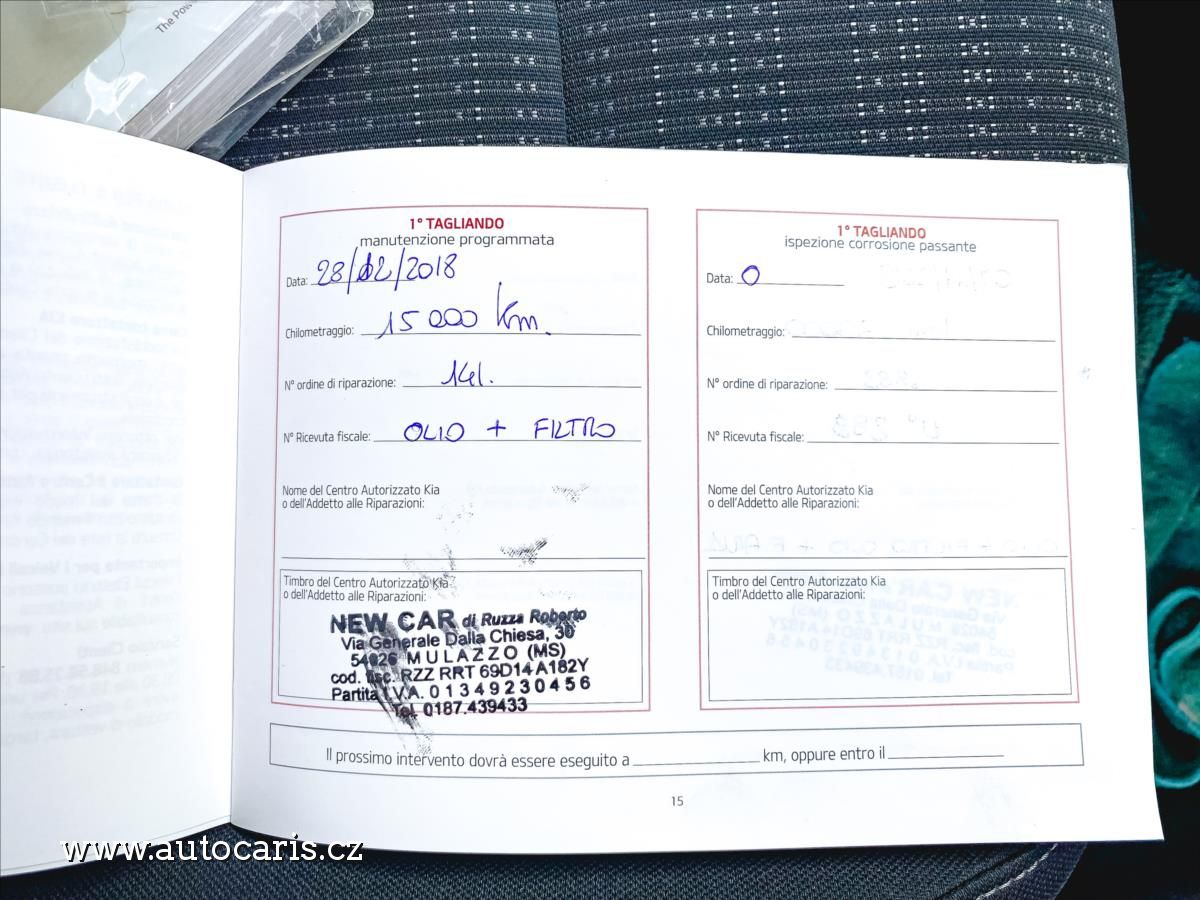 The Pow
1° TAGLIANDO
manutenzione programmata
Data: 28/12/2018
Chilometraggio: 15 000 Km.
N° ordine di riparazione: 141.
N° Ricevuta fiscale: OLIO + FILTRO
Nome del Centro Autorizzato Kia
o dell'Addetto alle Riparazioni:
Timbro del Centro Autorizzato Kia
o dell'Addetto alle Riparazioni:
NEW CAR di Ruzza Roberto
Via Generale Dalla Chiesa, 30
54026 MULAZZO (MS)
cod. fisc. RZZ RRT 69D14 A182Y
Partita I.V.A. 01349230456
Tel. 0187.439433
1° TAGLIANDO
ispezione corrosione passante
Data: 0
Chilometraggio:
N° ordine di riparazione:
N° Ricevuta fiscale:
Nome del Centro Autorizzato Kia
o dell'Addetto alle Riparazioni:
Timbro del Centro Autorizzato Kia
o dell'Addetto alle Riparazioni:
Il prossimo intervento dovrà essere eseguito a km, oppure entro il
15
www.autocaris.cz